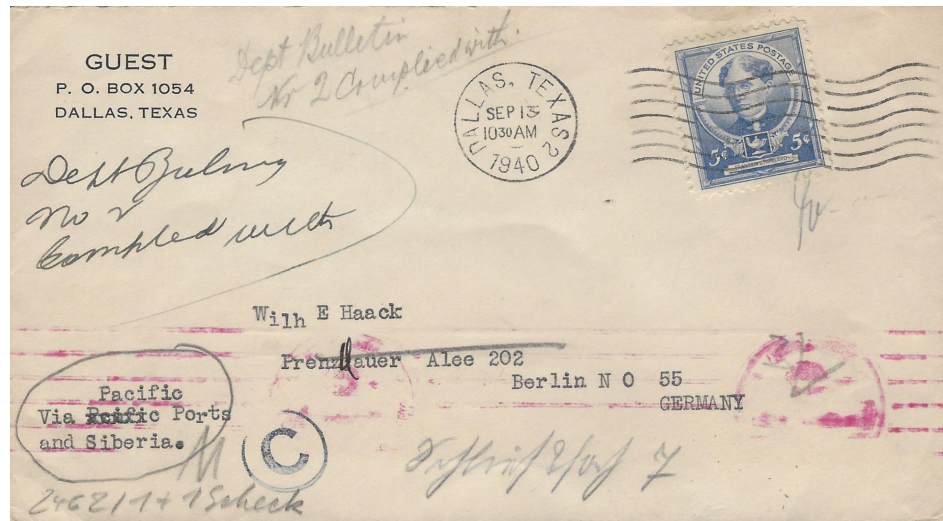 GUEST
P. O. BOX 1054
DALLAS, TEXAS
Dept Bulletin
No 2 Complied with.
DALLAS, TEXAS 2
SEP 13
10 30 AM
1940
UNITED STATES POSTAGE
5¢ 5¢
Dept
No 2
Compled with
Wilh E Haack
Prenzlauer Alee 202
Berlin N O 55
GERMANY
Pacific
Via Pcific Ports
and Siberia.
C
Schließfach 7
2462/1+1Scheck